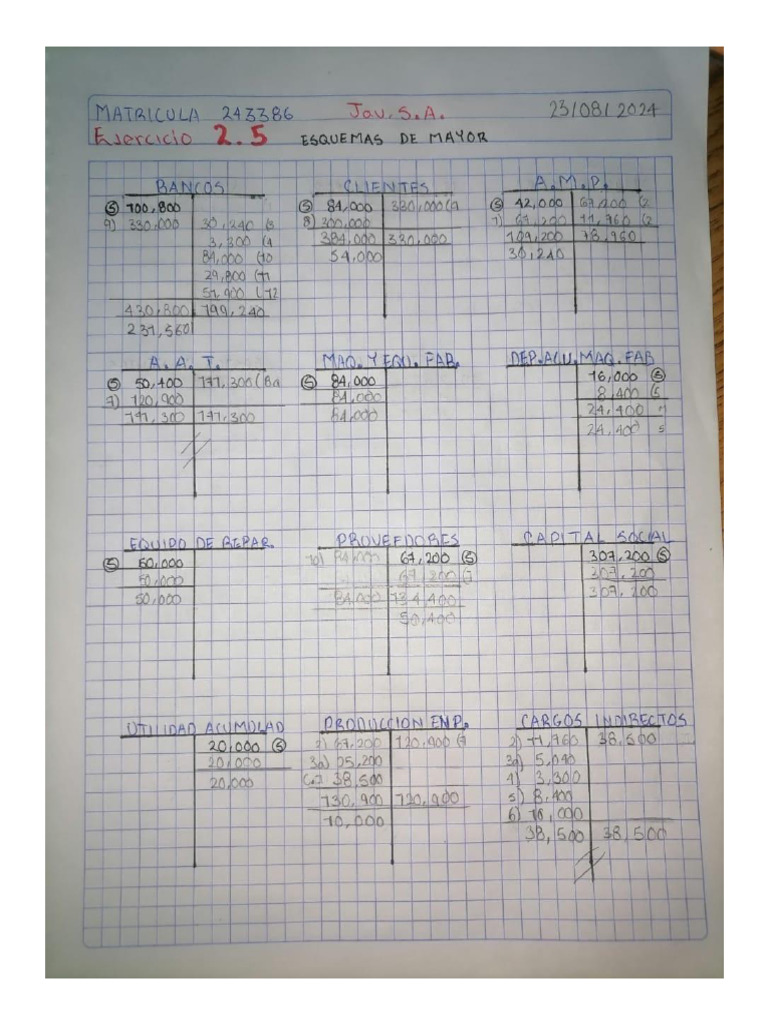 MATRICULA 243386 Jov. S.A. 23/08/2024
Ejercicio 2.5 ESQUEMAS DE MAYOR
BANCOS
Ⓢ 100,800
9) 330,000 30,240 (3
3,300 (4
84,000 (10
29,800 (11
51,900 (12
430,800 199,240
231,560
CLIENTES
Ⓢ 84,000 330,000 (9
8) 300,000
384,000 330,000
54,000
A.M.P.
Ⓢ 42,000 67,200 (2
1) 67,200 11,760 (2
109,200 78,960
30,240
A. A. T.
Ⓢ 50,400 171,300 (8a
7) 120,900
171,300 171,300
MAQ. Y EQUI. FAB.
Ⓢ 84,000
84,000
84,000
DEP. ACU. MAQ. FAB
16,000 Ⓢ
8,400 (5
24,400
24,400
EQUIPO DE REPAR.
Ⓢ 50,000
50,000
50,000
PROVEEDORES
10) 84,000 67,200 Ⓢ
67,200 (1
84,000 134,400
50,400
CAPITAL SOCIAL
307,200 Ⓢ
307,200
307,200
UTILIDAD ACUMULAD
20,000 Ⓢ
20,000
20,000
PRODUCCION ENP.
2) 67,200 120,900 (7
3a) 25,200
38,500
130,900 120,900
10,000
CARGOS INDIRECTOS
2) 11,760 38,500
3a) 5,040
4) 3,300
5) 8,400
6) 10,000
38,500 38,500